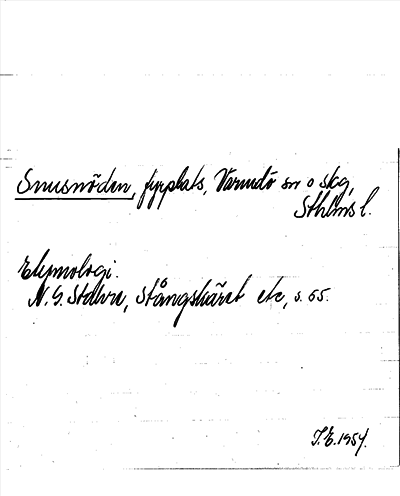 Snusnöden, fyrplats, Värmdö sn o skg,
Sthlms l.
Etymologi.
N. G. Stahre, Stångskäret etc, s. 65.
I.E. 1954.